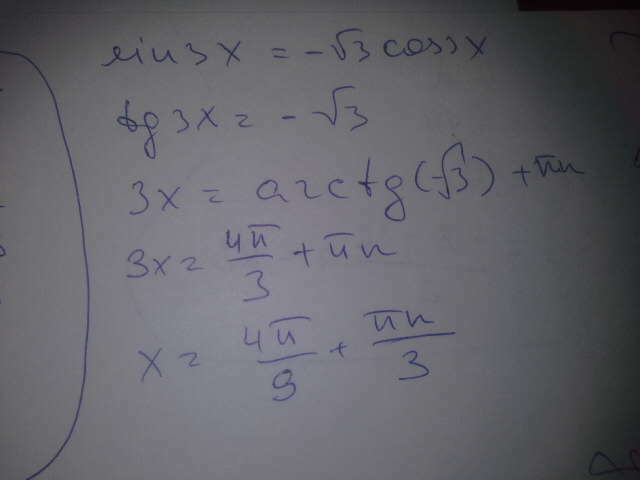 sin3x = -√3 cos3x
tg 3x = - √3
3x = arctg(√3) + πn
3x = 4π/3 + πn
x = 4π/9 + πn/3